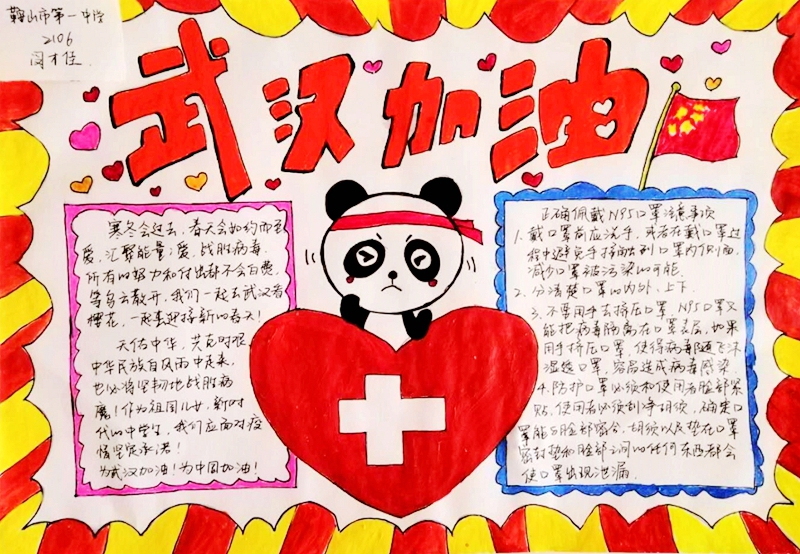 鞍山市第一中学
2106
武汉加油
寒冬会过去,春天会如约而至
爱,汇聚能量,爱,战胜病毒,
所有的努力和付出都不会白费,
等乌云散开,我们一起去武汉看
樱花,一起喜迎接新的春天!
天佑中华,共克时艰
中华民族自风雨中走来,
也必将坚韧地战胜病
魔!作为祖国儿女,新时
代的中学生,我们应面对疫
情坚定承诺!
为武汉加油!为中国加油!
正确佩戴N95口罩注意事项
1.戴口罩前应洗手,或者在戴口罩过
程中避免手接触到口罩内侧面,
减少口罩被污染的可能.
2.分清楚口罩的内外、上下.
3.不要用手去挤压口罩,N95口罩只
能把病毒隔离在口罩表层,如果
用手挤压口罩,使得病毒随飞沫
湿透口罩,容易造成病毒感染.
4.防护口罩必须和使用者脸部紧
贴,使用者必须刮净胡须,确定口
罩能与脸部密合,胡须以及垫在口罩
密封垫和脸部之间的任何东西都会
使口罩出现泄漏.